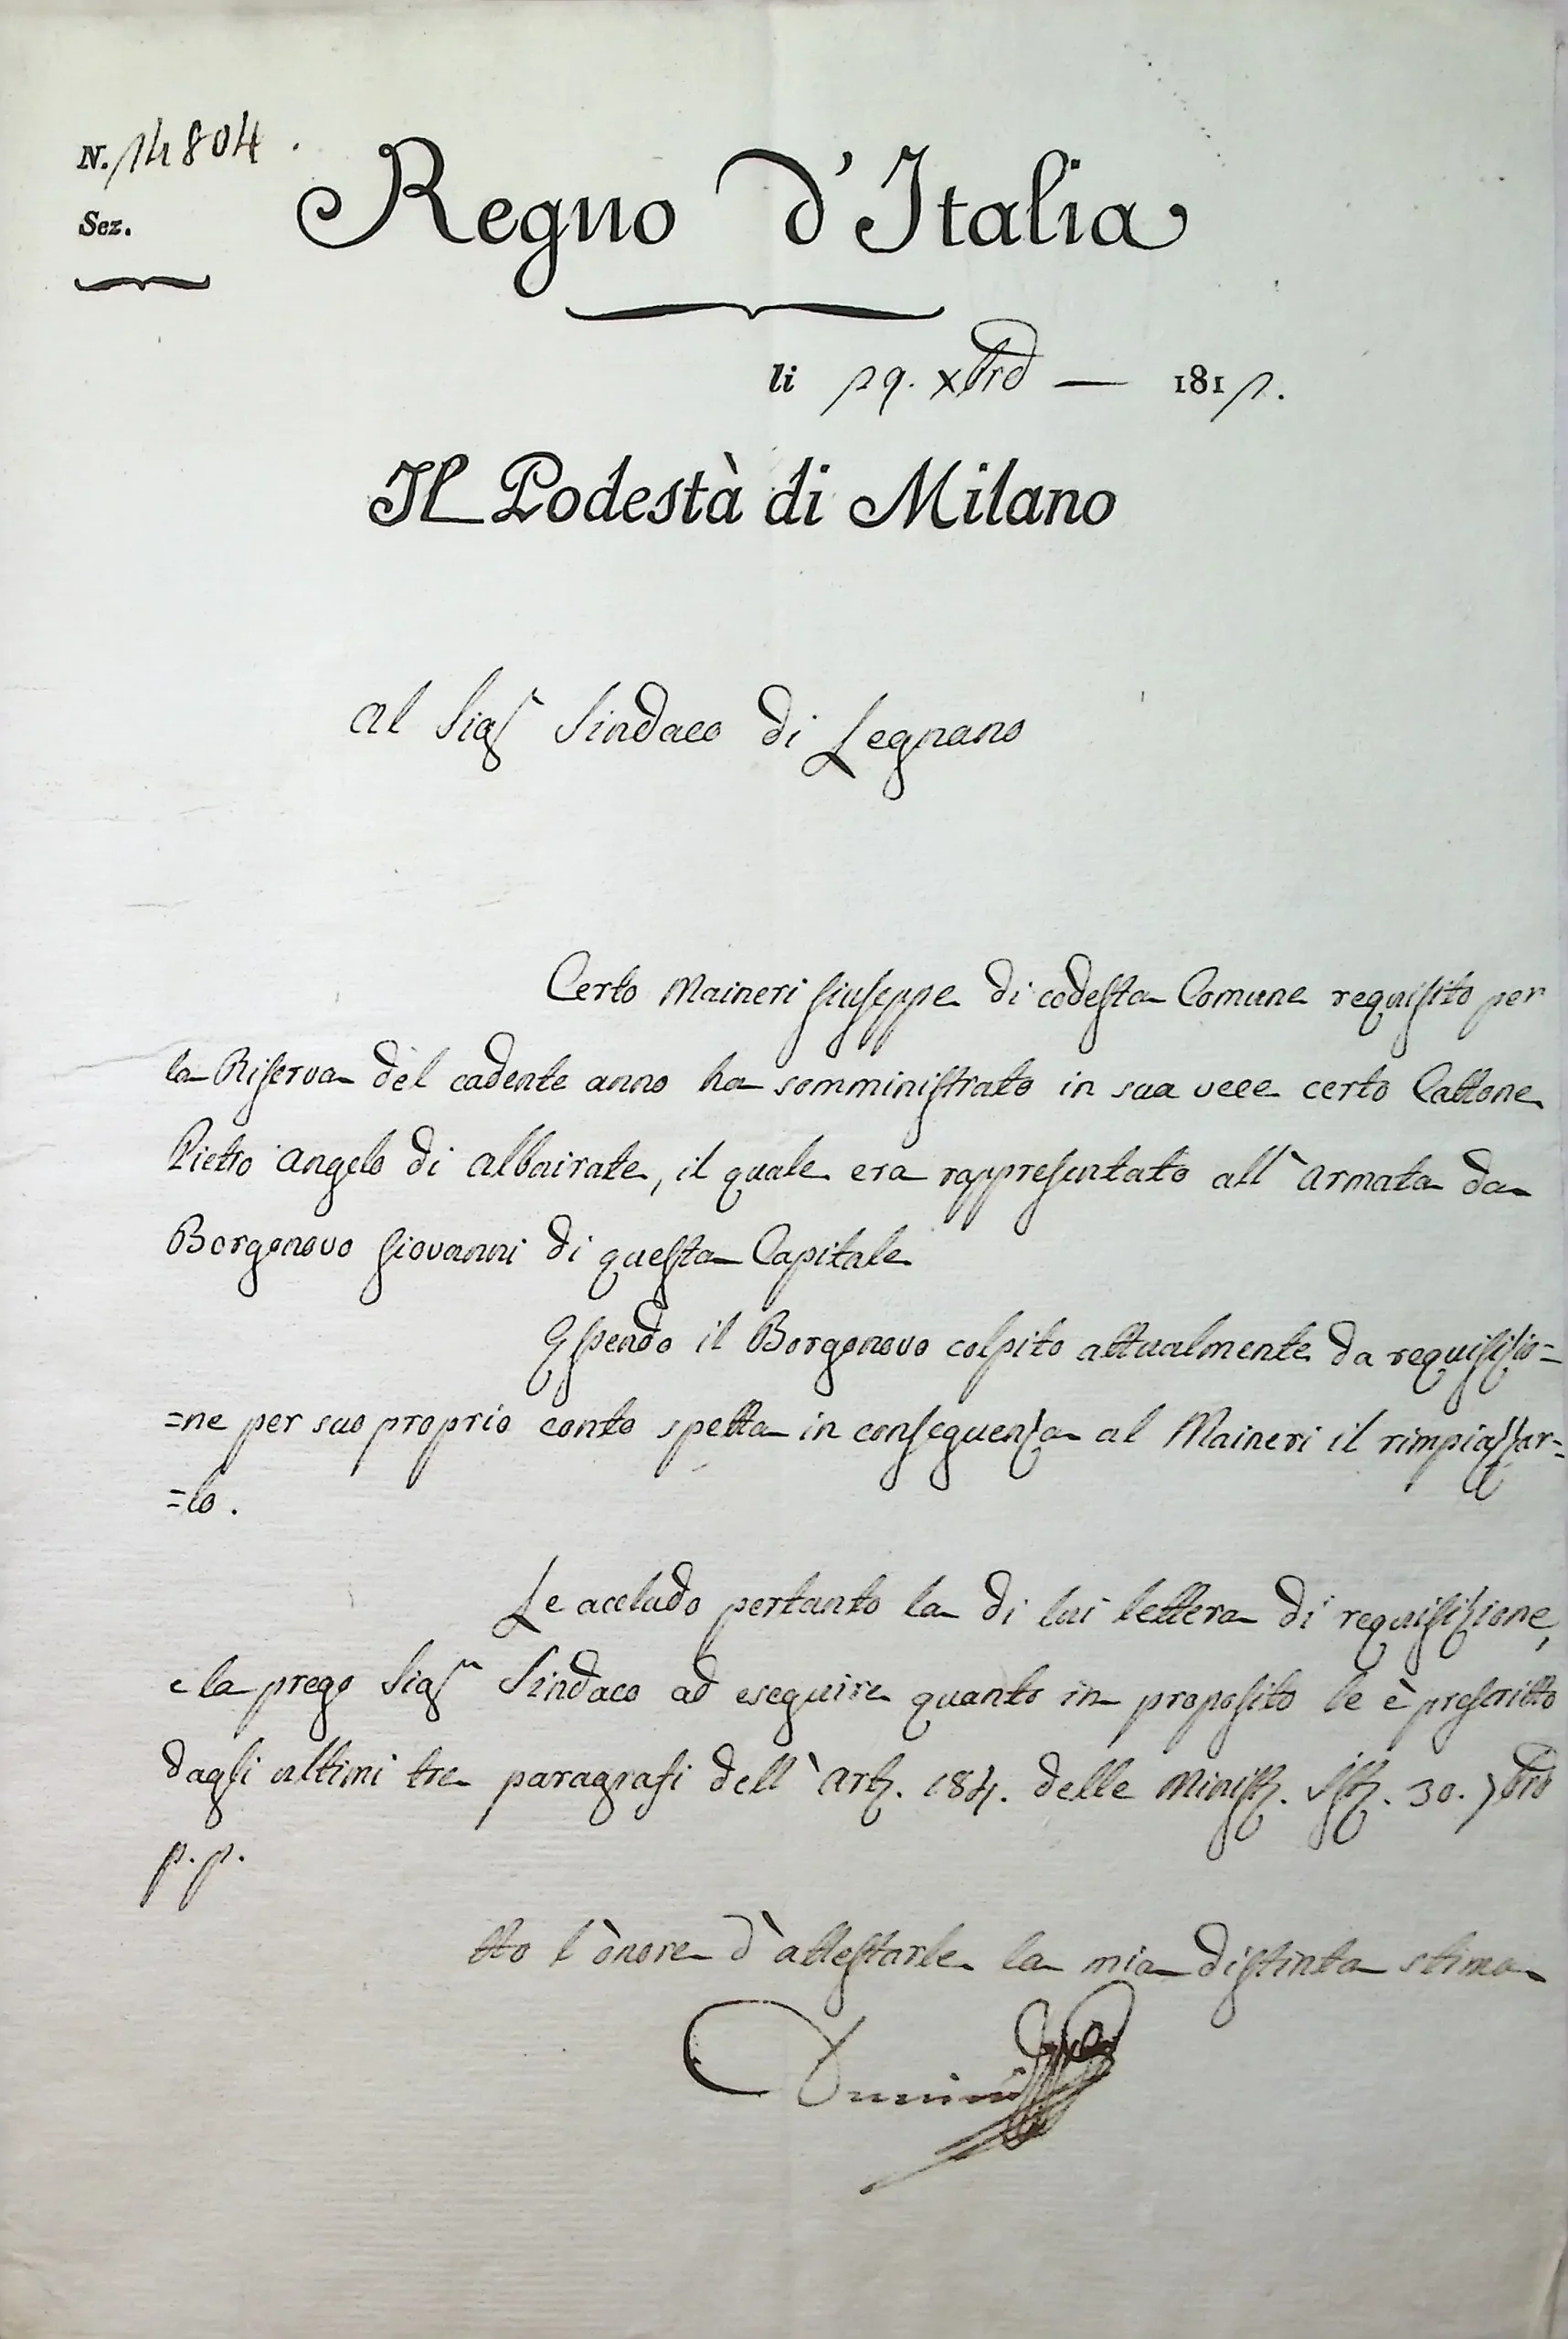 N. 14804.
Sez.
Regno d'Italia
li 29. xbre — 1812.
Il Podestà di Milano
Al Sigr Sindaco di Legnano
Certo Maineri Giuseppe di codesta Comune requisito per
la Riserva del cadente anno ha somministrato in sua vece certo Cattone
Pietro Angelo di Albairate, il quale era rappresentato all'Armata da
Borgonovo Giovanni di questa Capitale
Essendo il Borgonovo colpito attualmente da requisizio=
=ne per suo proprio conto spetta in conseguenza al Maineri il rimpiazzar=
=lo.
Le accludo pertanto la di lui lettera di requisizione,
e la prego Sigr Sindaco ad eseguire quanto in proposito le è prescritto
dagli ultimi tre paragrafi dell'Art. 184. delle Minist. Ist. 30. 7bre
p.p.
Ho l'onore d'attestarle la mia distinta stima